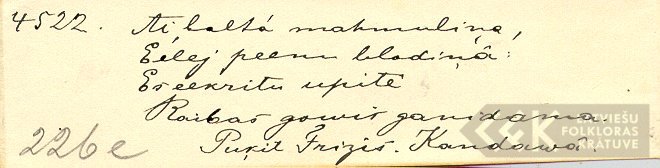 4522. Ai baltá mahmuliņa,
Eelej peenu blodiņâ:
Es eekritu upitē
Raibas gowis ganidama.
Puķit Frizis. Kandawâ.
226e
LATVIEŠU
FOLKLORAS
KRĀTUVE